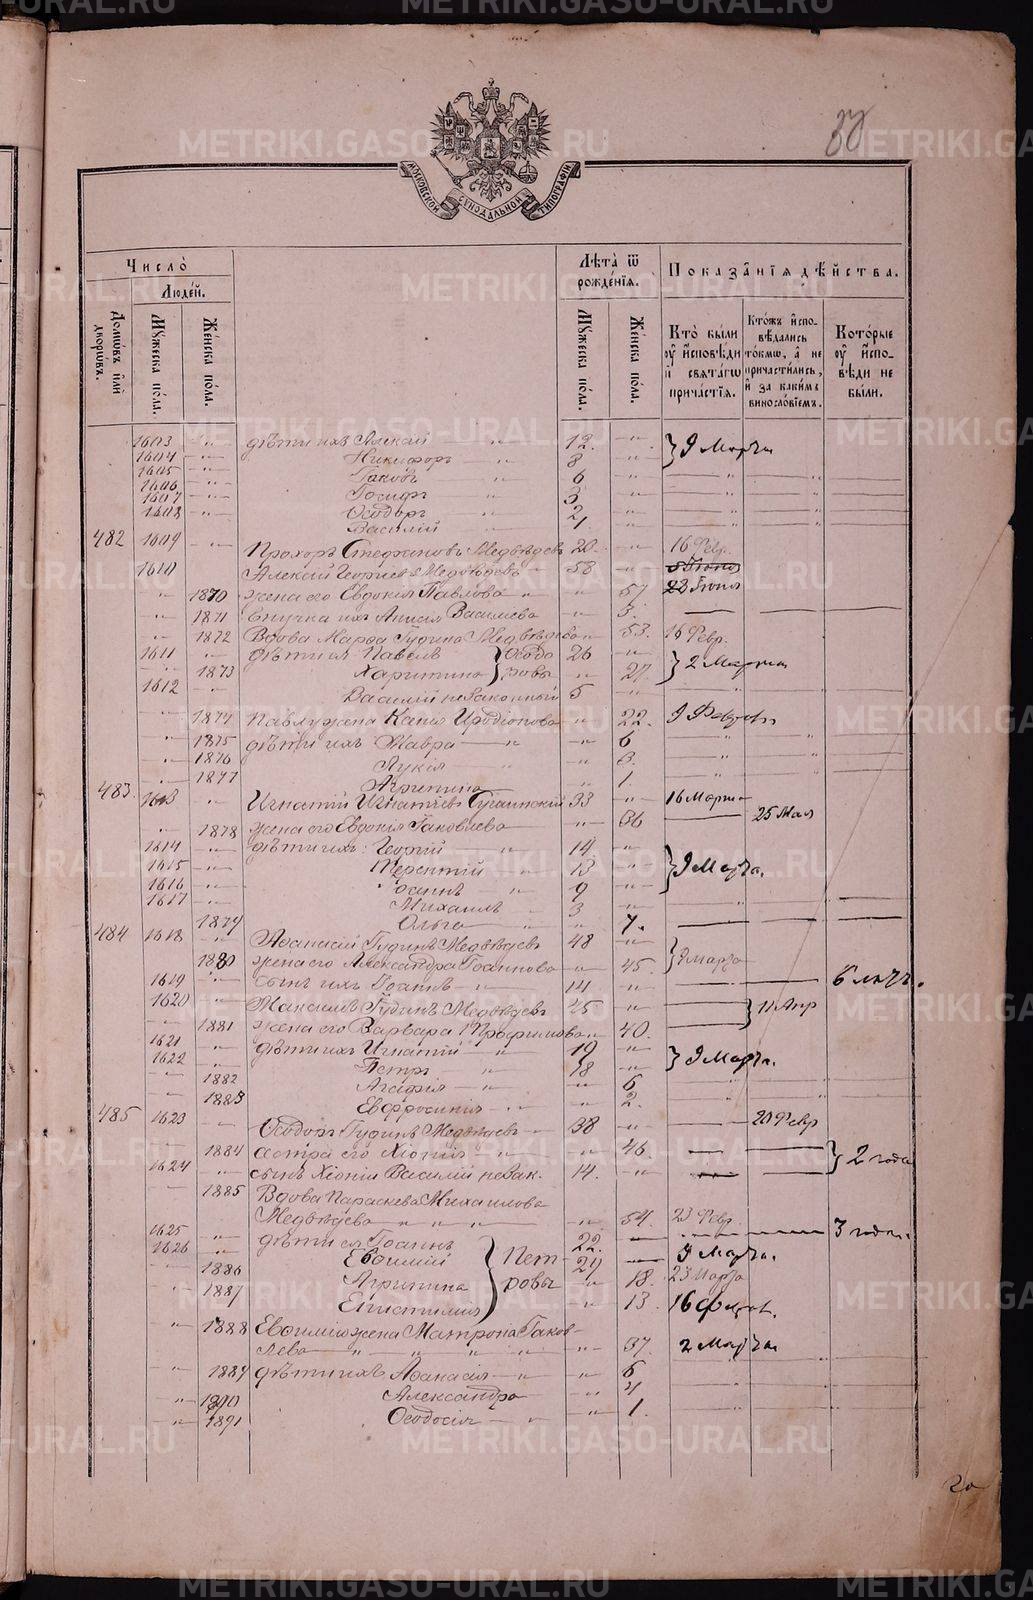 30
МОСКОВСКОЙ СѴНОДАЛЬНОЙ ТИПОГРАФІИ
Число̀
Люде́й.
Домѡ́въ и҆лѝ дворѡ́въ.
Мꙋ́жеска по́ла.
Же́нска по́ла.
Лѣ́та ѿ рожде́нїѧ.
Мꙋ́жеска по́ла.
Же́нска по́ла.
Показа̑нїѧ дѣ́йства.
Кто̀ бы́ли ᲂу҆ и҆сповѣ́ди и҆ свѧта́гѡ прича́стїѧ.
Кто́жъ и҆спо-
вѣ́дались
то́кмѡ, а҆ не
причасти́лись,
и҆ за каки́мъ
виносло́вїемъ.
Кото́рые ᲂу҆ и҆спо-
вѣ́ди не
бы́ли.
1603 дѣти ихъ Алексій 12. } 9 Марта
1604 Никифоръ 8
1605 Іаковъ 6
1606 Іосифъ 3
1607 Ѳеодоръ 2
1608 Василій 1
482 1609 Прохоръ Стефановъ Медвѣдевъ 20 16 Февр.
1610 Алексій Георгіевъ Медвѣдевъ 58
1870 жена его Евдокія Павлова 57 28 Іюня
1871 Внучка ихъ Анисія Васильева 3.
1872 Вдова Марѳа Гудина Медвѣдева 53. 16 Февр.
1611 дѣти ея Павелъ } Ѳеодо 26 } 2 Марта
1873 Харитина } ровы 27.
1612 Василій незаконный 5
1874 Павлу жена Ксенія Иродіонова 22. 9 Февр.
1875 дѣти ихъ Мавра 6
1876 Лукія 3.
1877 Агрипина 1.
483. 1613 Игнатій Игнатіевъ 33 16 Марта
1878 жена его Евдокія Іаковлева 36 25 Мая
1614 дѣти ихъ: Георгій 14. } 9 Марта.
1615 Терентій 13
1616 Іоаннъ 9
1617 Михаилъ 3
1879 Ольга 7.
484 1618 Аѳанасій Гудинъ Медвѣдевъ 48 } Марта
1880 жена его Александра Іоаннова 45.
1619 сынъ ихъ Іоаннъ 14 6 лѣтъ.
1620 Максимъ Гудинъ Медвѣдевъ 45 } 11 Апр
1881 жена его Варвара Трофимова 40.
1621 дѣти ихъ Игнатій 19 } 9 Марта.
1622 Петръ 18
1882 Агафія 6
1883 Евфросинія 2.
485 1623 Ѳеодоръ Гудинъ Медвѣдевъ 38 20 Февр
1884 сестра его Хіонія 46. } 2 года
1624 сынъ Хіоніи Василій незак. 14.
1885 Вдова Параскева Михаилова
Медвѣдева 54. 23 Февр.
1625 дѣти ея Іоаннъ } 22. 3 года.
1626 Евѳимій } Пет 9 Марта.
1886 Агрипина } ровы 18. 23 Марта
1887 Епистимія } 13. 16 Февр.
1888 Евѳимію жена Матрона Іаков-
лева 37. 2 Марта
1889 дѣти ихъ Аѳанасія 6
1890 Александра 4
1891 Ѳеодосія 1.
METRIKI.GASO-URAL.RU